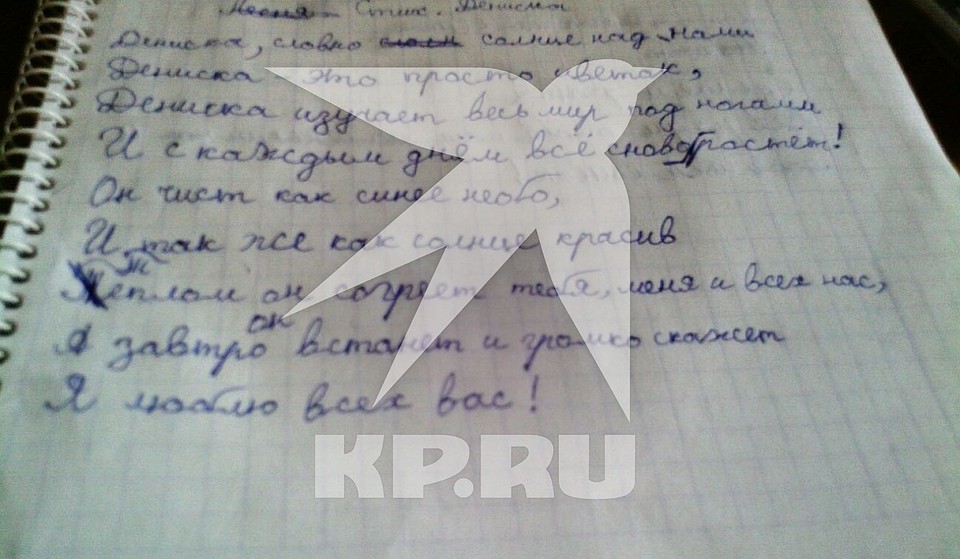 Песня – Стих. Дениска
Дениска, словно солнце над нами
Дениска это просто цветок,
Дениска изучает весь мир под ногами
И с каждым днём всё снова растёт!
Он чист как синее небо,
И так же как солнце красив
Теплом он согреет тебя, меня и всех нас,
А завтро он встанет и громко скажет
Я люблю всех вас!
KP.RU